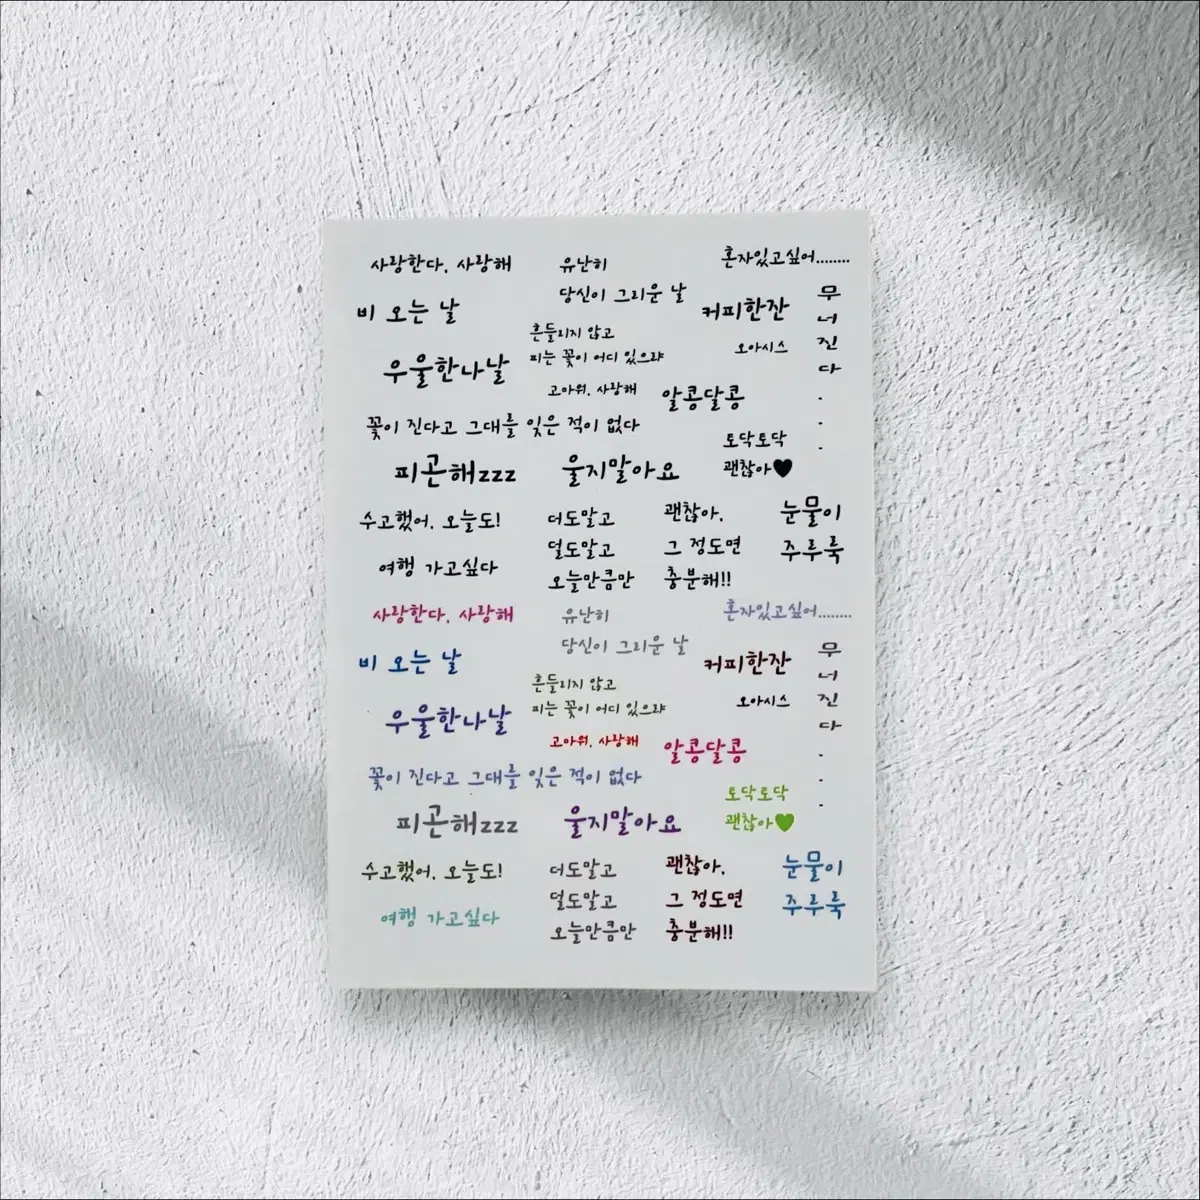 사랑한다. 사랑해
유난히
당신이 그리운 날
혼자있고싶어........
비 오는 날
흔들리지 않고
피는 꽃이 어디 있으랴
커피한잔
오아시스
무
너
진
다
.
.
.
우울한나날
고마워. 사랑해
알콩달콩
꽃이 진다고 그대를 잊은 적이 없다
토닥토닥
괜찮아♥
피곤해zzz
울지말아요
수고했어. 오늘도!
더도말고
덜도말고
오늘만큼만
괜찮아.
그 정도면
충분해!!
눈물이
주루룩
여행 가고싶다
사랑한다. 사랑해
유난히
당신이 그리운 날
혼자있고싶어........
비 오는 날
흔들리지 않고
피는 꽃이 어디 있으랴
커피한잔
오아시스
무
너
진
다
.
.
.
우울한나날
고마워. 사랑해
알콩달콩
꽃이 진다고 그대를 잊은 적이 없다
토닥토닥
괜찮아♥
피곤해zzz
울지말아요
수고했어. 오늘도!
더도말고
덜도말고
오늘만큼만
괜찮아.
그 정도면
충분해!!
눈물이
주루룩
여행 가고싶다